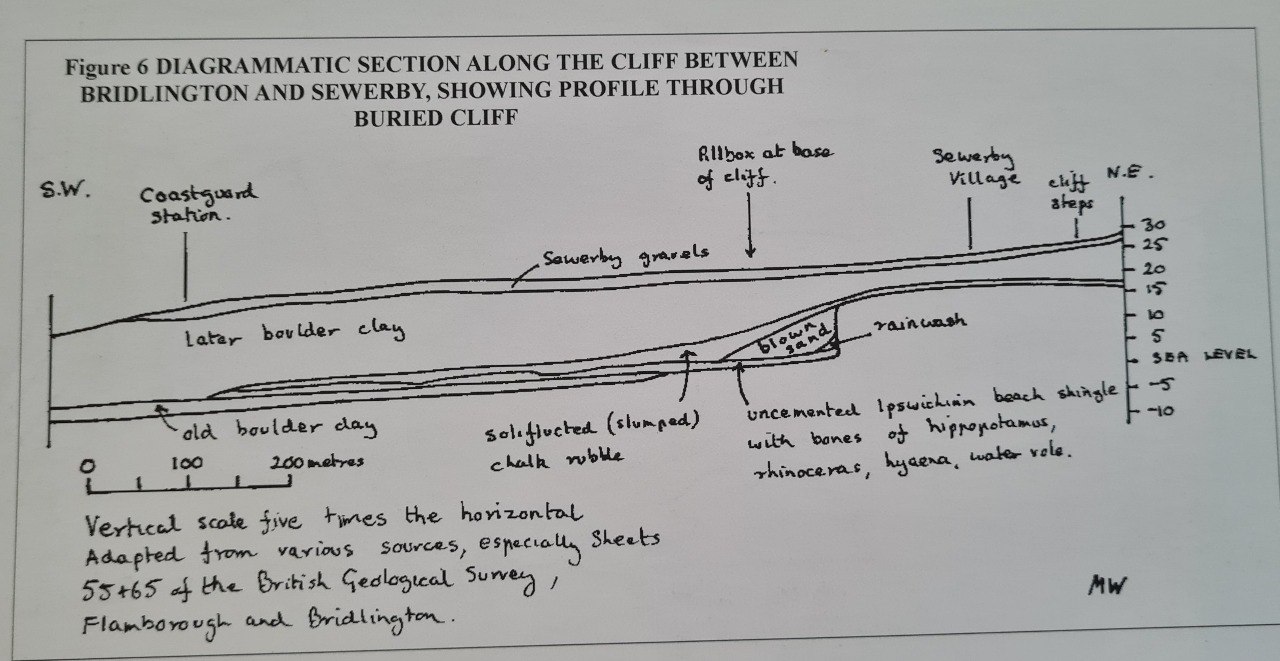 Figure 6 DIAGRAMMATIC SECTION ALONG THE CLIFF BETWEEN
BRIDLINGTON AND SEWERBY, SHOWING PROFILE THROUGH
BURIED CLIFF
S.W.
Coastguard
Station.
Pillbox at base
of cliff.
Sewerby
Village
cliff
steps
N.E.
30
25
20
15
10
5
SEA LEVEL
-5
-10
Sewerby gravels
later boulder clay
blown
sand
rainwash
old boulder clay
solifucted (slumped)
chalk rubble
uncemented Ipswichian beach shingle
with bones of hippopotamus,
rhinoceras, hyaena, water vole.
0 100 200 metres
Vertical scale five times the horizontal
Adapted from various sources, especially Sheets
55+65 of the British Geological Survey,
Flamborough and Bridlington.
MW